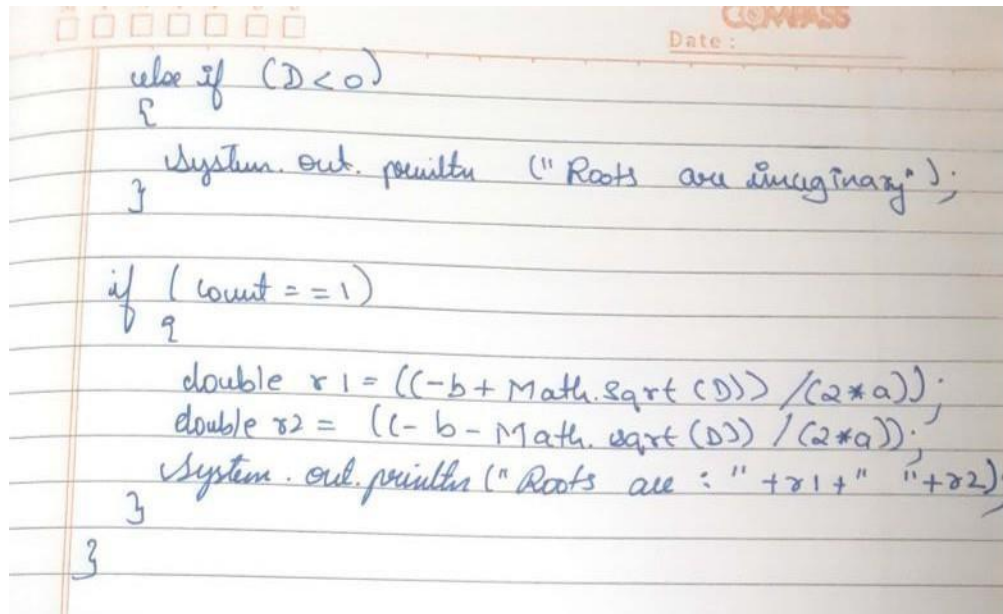 COMPASS
Date :
else if (D<0)
{
System. out. println (" Roots are imaginary");
}
if ( count = = 1)
{
double r1 = ((-b + Math. sqrt (D)) /(2*a));
double r2 = ((- b - Math. sqrt (D)) / (2*a));
System . out. println (" Roots are : " +r1+" "+r2);
}
}